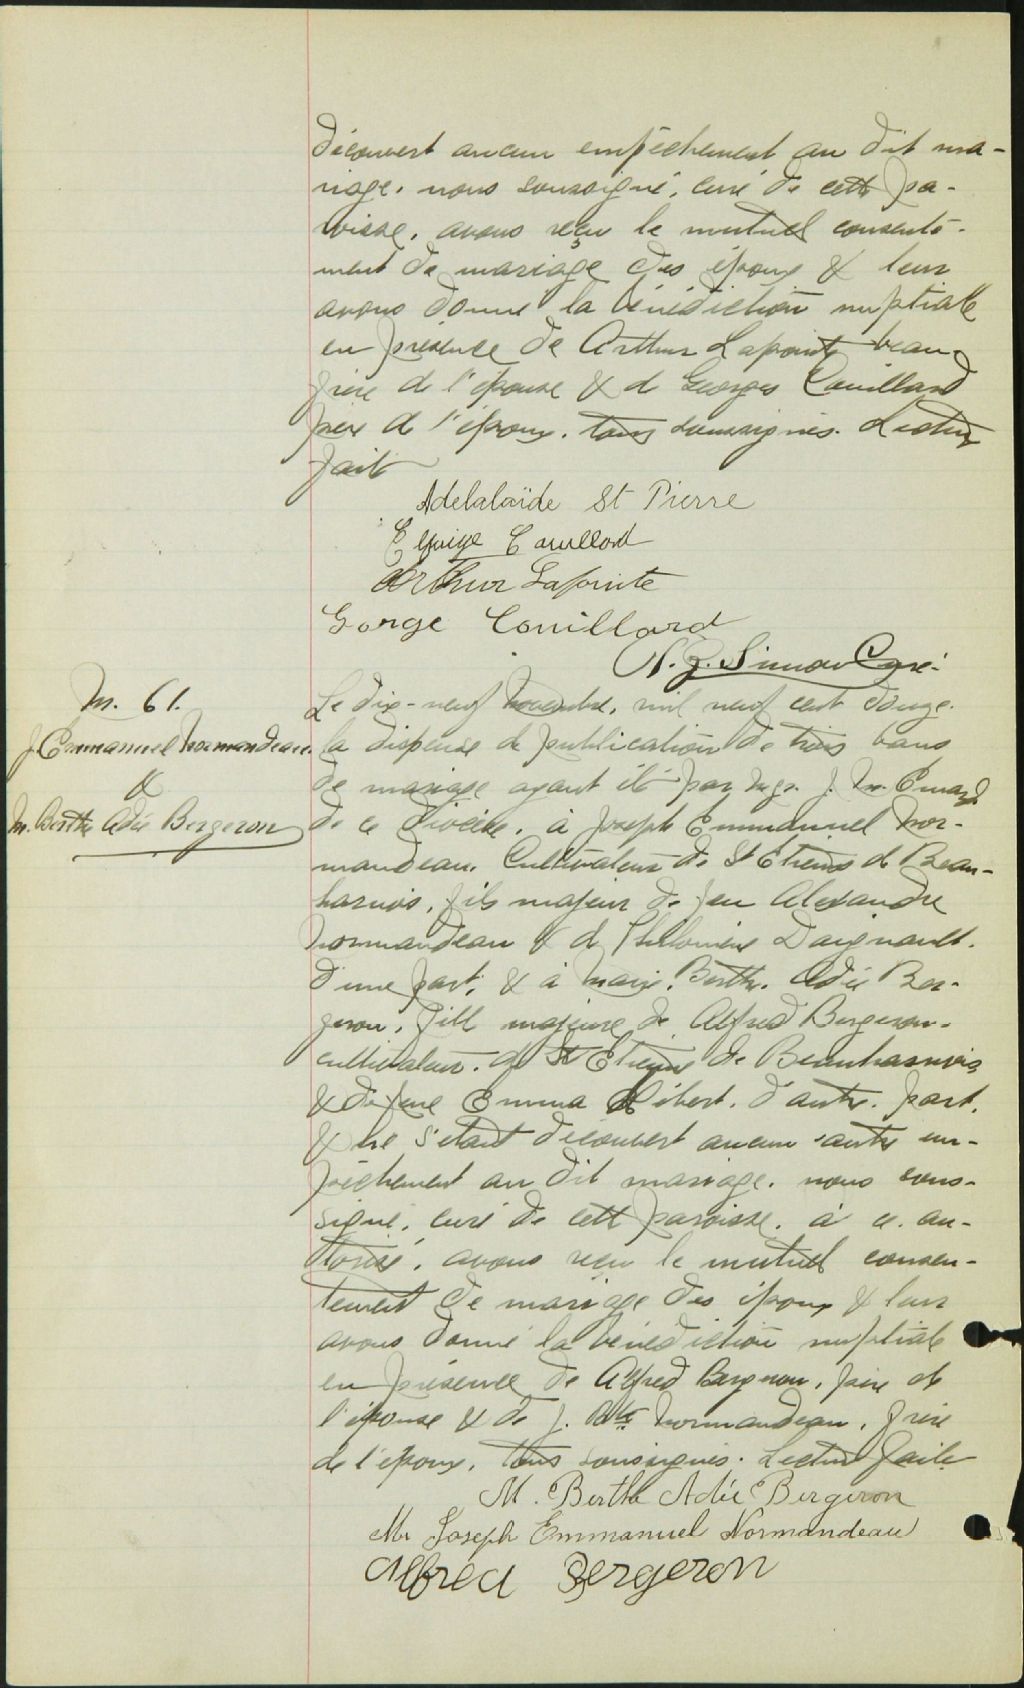 découvert aucun empêchement au dit ma-
riage, nous soussigné, curé de cette pa-
roisse, avons reçu le mutuel consente-
ment de mariage des époux & leur
avons donné la bénédiction nuptiale
en présence de Arthur Lapointe beau-
frère de l'épouse & de Georges Couillard
père de l'époux. tous soussignés. Lecture
fait
Adelalaïde St Pierre
Couillard
Arthur Lapointe
Gorge Couillard
Simon Curé.
M. 61.
J Emmanuel Normandeau.
&
M. Berthe Adée Bergeron
Le dix-neuf Novembre, mil neuf cent douze.
la dispense de publication de trois bans
de mariage ayant été par Mgr. J. M. Emard
de ce diocèse, à Joseph Emmanuel Nor-
mandeau. Cultivateur de St Etienne de Beau-
harnois, fils majeur de feu Alexandre
Normandeau & de Philomène Daignault.
d'une part, & à Marie. Berthe. Adée Ber-
geron, fille majeure de Alfred Bergeron.
cultivateur. de St Etienne de Beauharnois
& de feue Emma Hébert. d'autre. part.
& ne s'étant découvert aucun autre em-
pêchement au dit mariage. nous sous-
signé, curé de cette paroisse. à ce. au-
torisé, avons reçu le mutuel consen-
tement de mariage des époux & leur
avons donné la bénédiction nuptiale
en présence de Alfred Bergeron, père de
l'épouse & de J. Bte Normandeau, frère
de l'époux, tous soussignés. Lecture faite
M. Berthe Adée Bergeron
Mr Joseph Emmanuel Normandeau
Alfred Bergeron